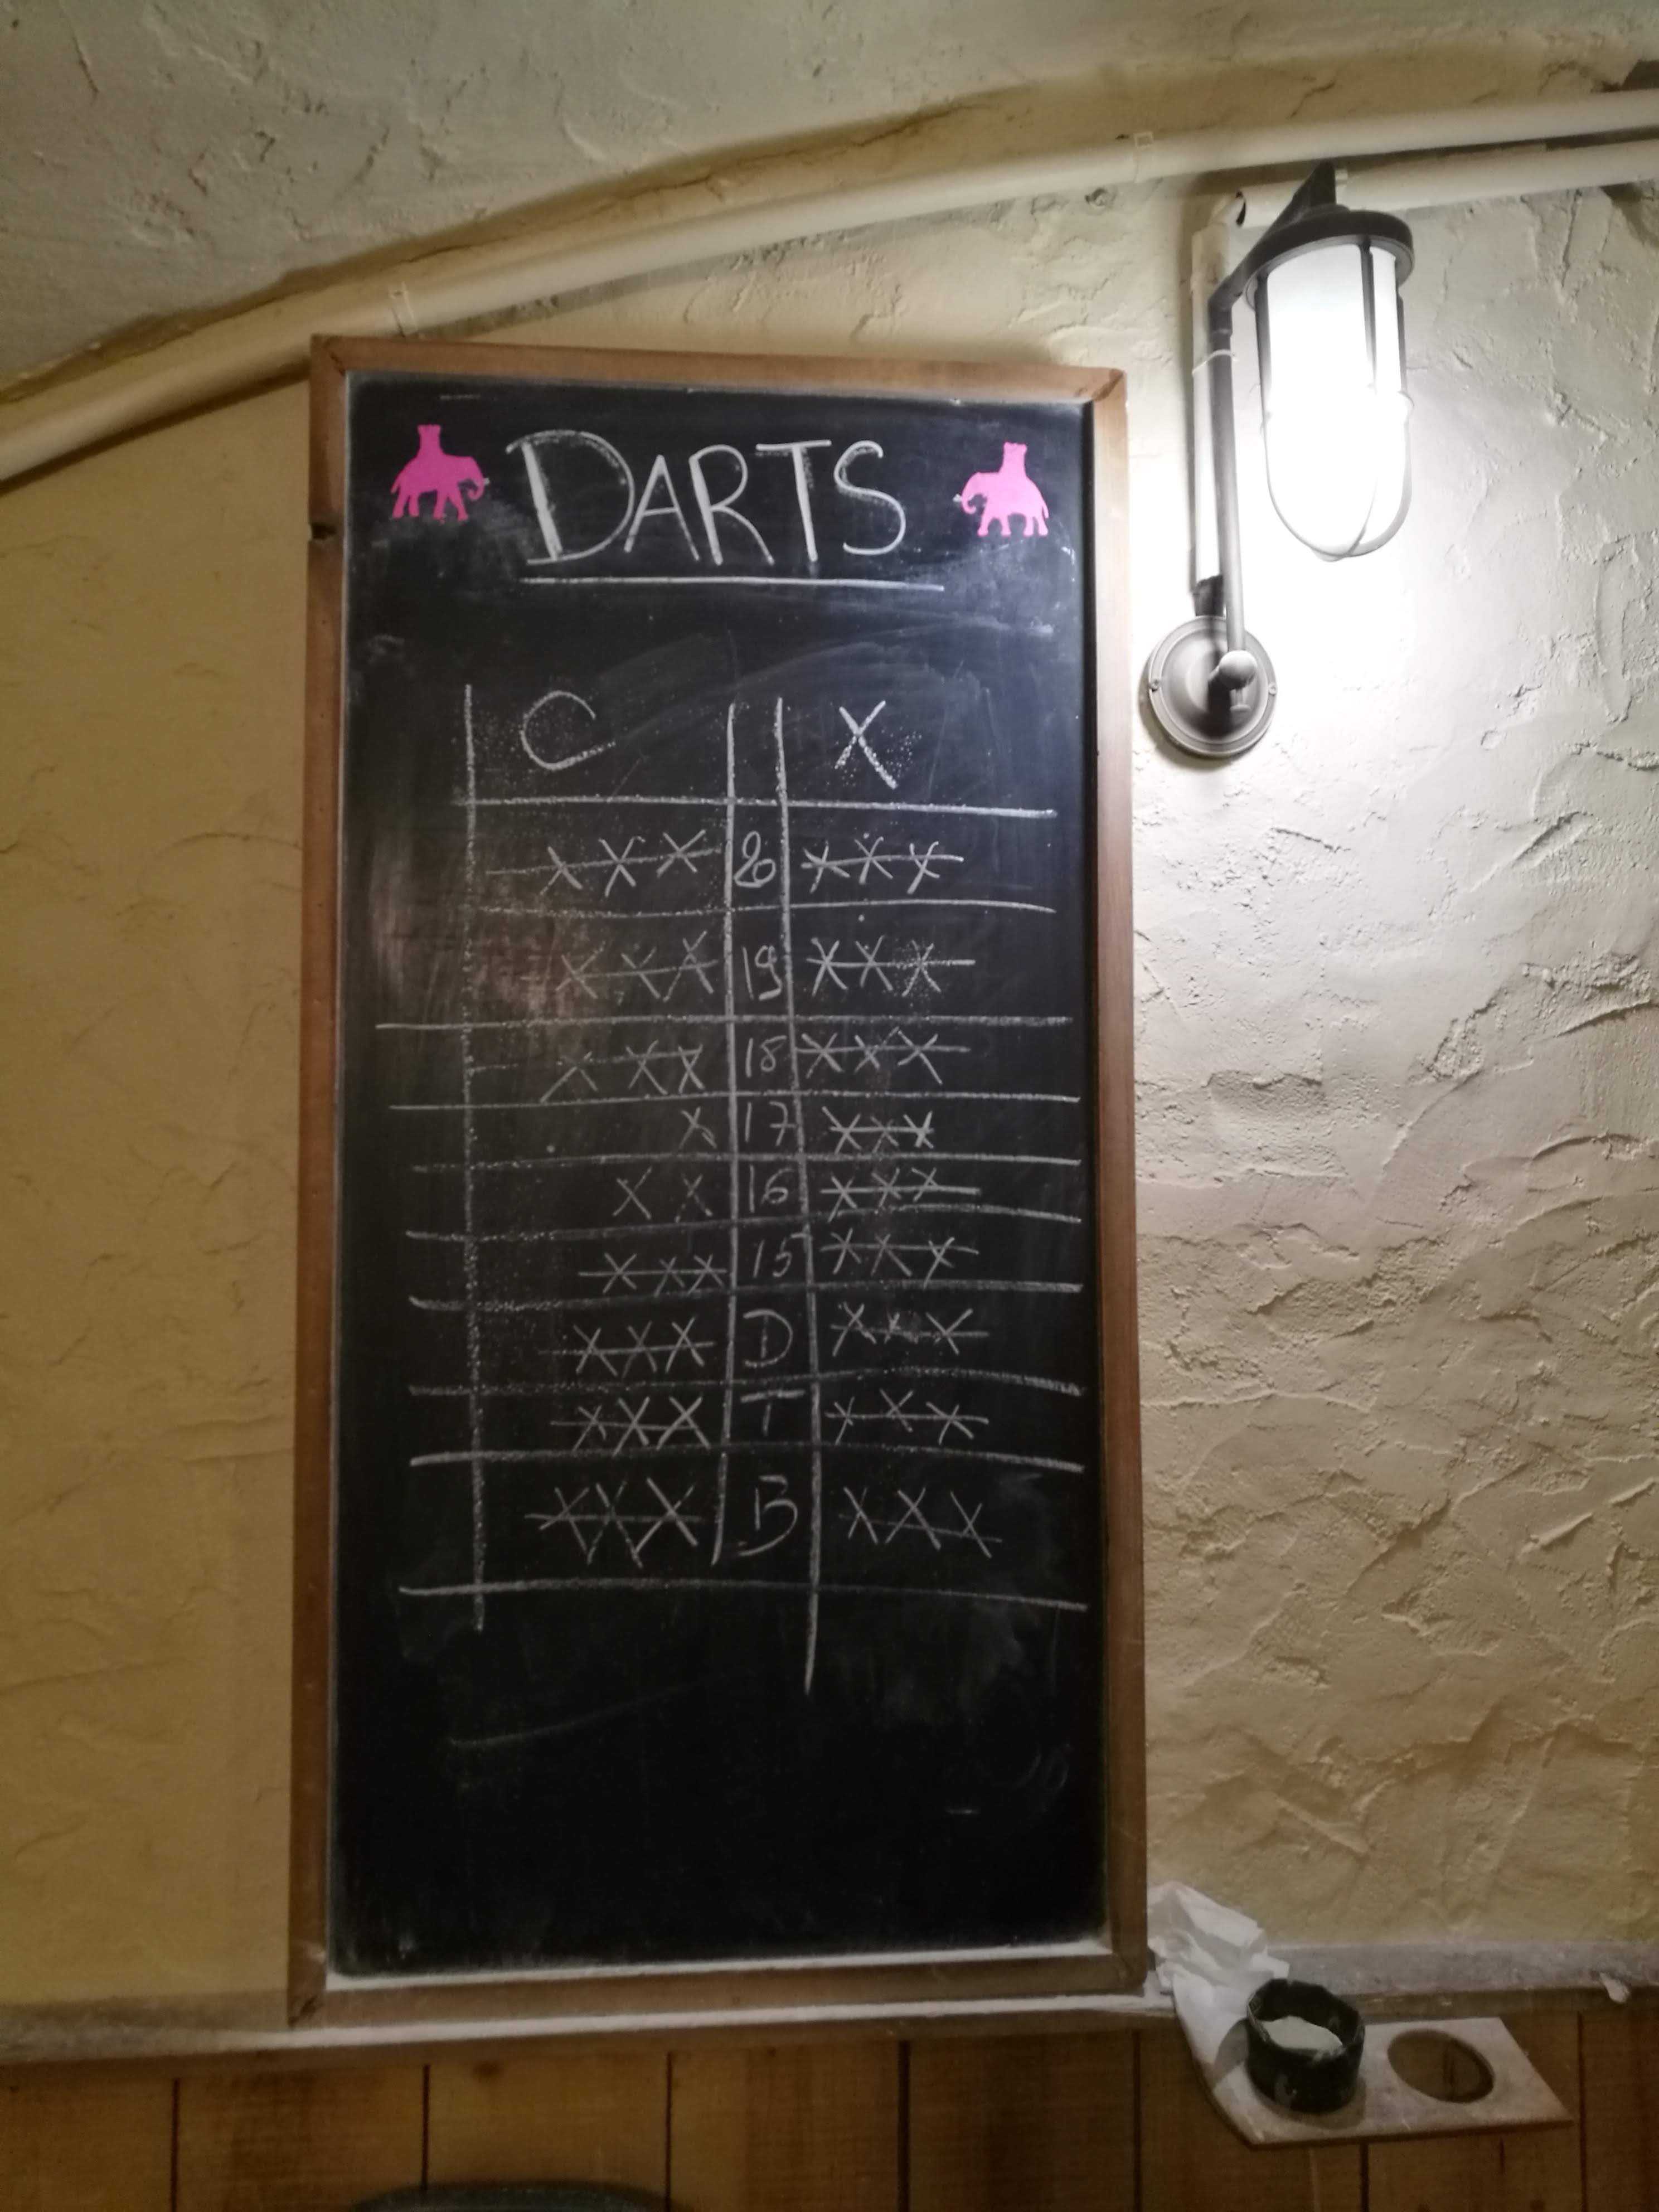 DARTS
C X
XXX 20 XXX
XXX 19 XXX
XXX 18 XXX
X 17 XXX
XX 16 XXX
XXX 15 XXX
XXX D XXX
XXX T XXX
XXX B XXX